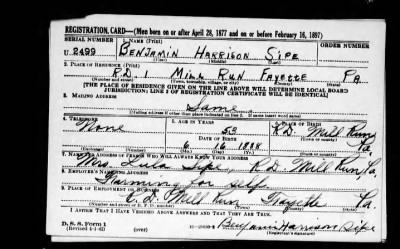 REGISTRATION CARD—(Men born on or after April 28, 1877 and on or before February 16, 1897)
SERIAL NUMBER 1. NAME (Print) ORDER NUMBER
U 2499 BENJAMIN HARRISON SIPE
(First) (Middle) (Last)
2. PLACE OF RESIDENCE (Print)
R.D. 1 Mill Run Fayette Pa
(Number and street) (Town, township, village, or city) (County) (State)
[THE PLACE OF RESIDENCE GIVEN ON THE LINE ABOVE WILL DETERMINE LOCAL BOARD
JURISDICTION; LINE 2 OF REGISTRATION CERTIFICATE WILL BE IDENTICAL]
3. MAILING ADDRESS
Same
[Mailing address if other than place indicated on line 2. If same insert word same]
4. TELEPHONE 5. AGE IN YEARS 6. PLACE OF BIRTH
None 53 R.D. Mill Run
DATE OF BIRTH (Town or county)
6 16 1888 Pa
(Mo.) (Day) (Yr.) (State or country)
7. NAME AND ADDRESS OF PERSON WHO WILL ALWAYS KNOW YOUR ADDRESS
Mrs. Lula Sipe, R.D. Mill Run Pa.
8. EMPLOYER'S NAME AND ADDRESS
Farming for self
9. PLACE OF EMPLOYMENT OR BUSINESS
R.D. Mill Run Fayette Pa.
(Number and street or R. F. D. number) (Town) (County) (State)
I AFFIRM THAT I HAVE VERIFIED ABOVE ANSWERS AND THAT THEY ARE TRUE.
D. S. S. Form 1
(Revised 4-1-42) (over) Benjamin Harrison Sipe